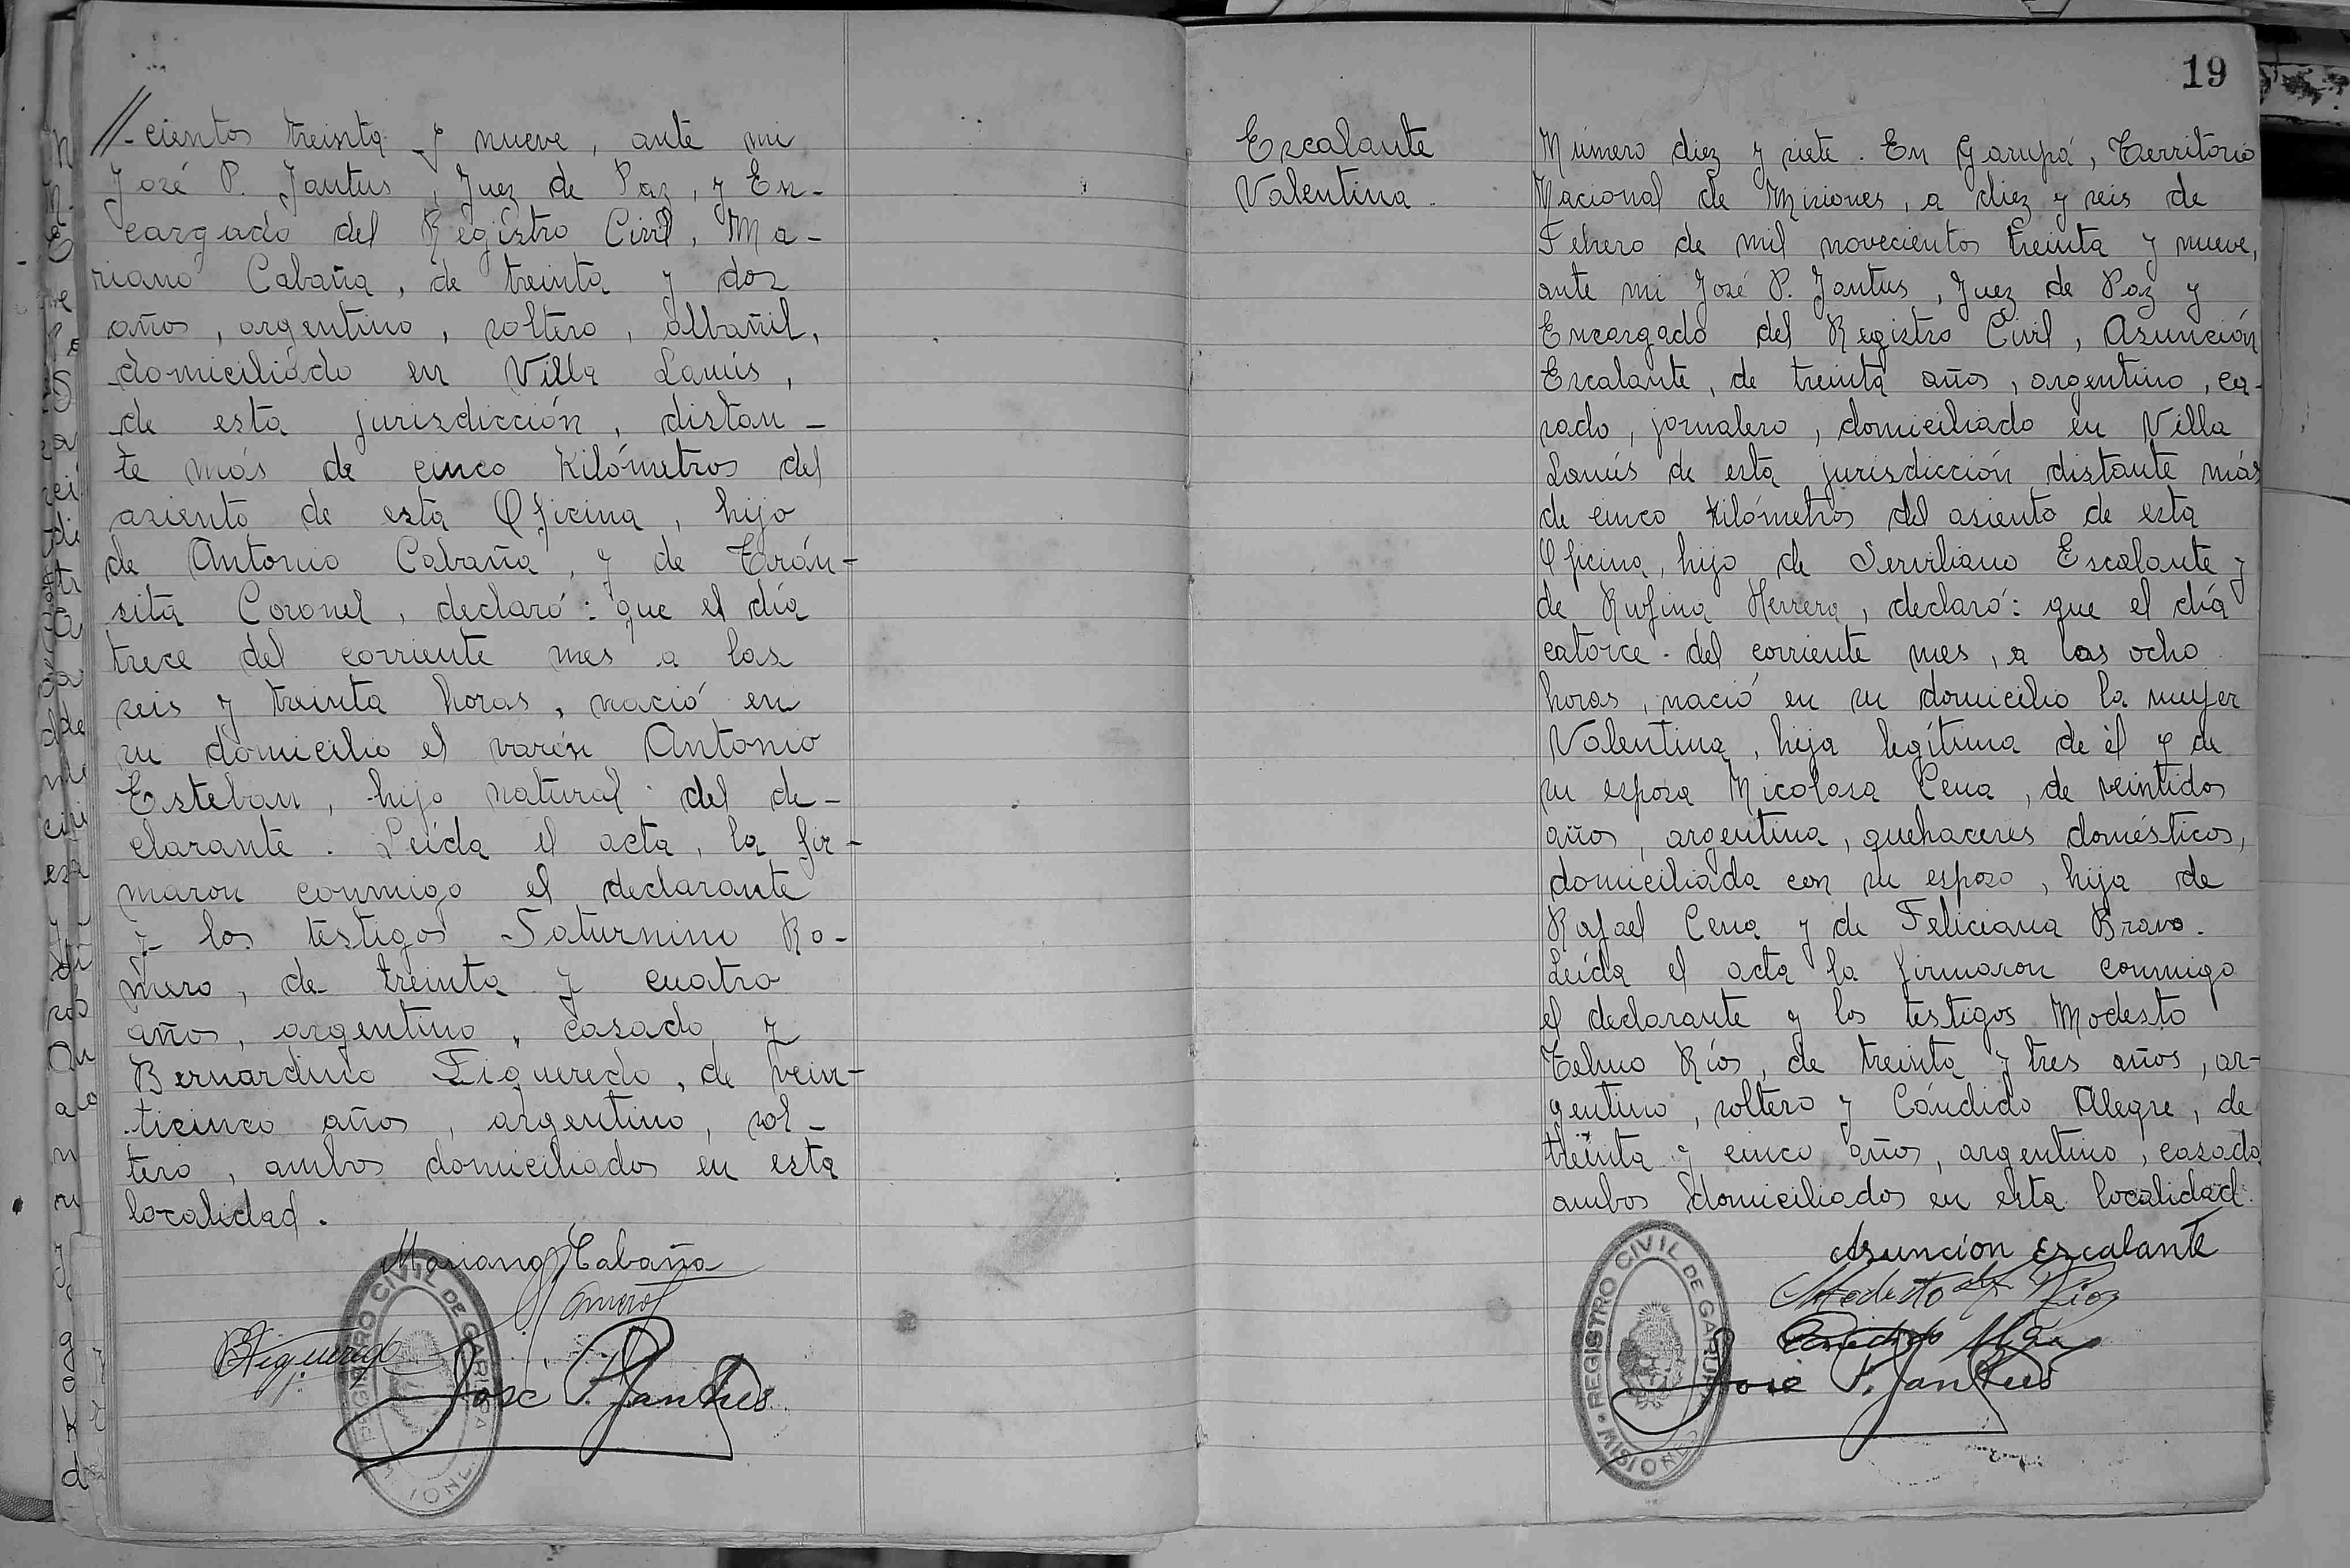 //-cientos treinta y nueve, ante mi
José P. Jantus, Juez de Paz, y En-
cargado del Registro Civil, Ma-
riano Cabaña, de treinta y dos
años, argentino, soltero, albañil,
domiciliado en Villa Lanús,
de esta jurisdicción, distan-
te más de cinco Kilómetros del
asiento de esta Oficina, hijo
de Antonio Cabaña, y de Trán-
sita Coronel, declaró: que el día
trece del corriente mes a las
seis y treinta horas, nació en
su domicilio el varón Antonio
Esteban, hijo natural del de-
clarante. Leída el acta, la fir-
maron conmigo el declarante
y los testigos Saturnino Ro-
mero, de treinta y cuatro
años, argentino, casado y
Bernardino Figueredo, de vein-
ticinco años, argentino, sol-
tero, ambos domiciliados en esta
localidad.
Mariano Cabaña
BFigueredo
José P. Jantus
REGISTRO CIVIL DE GARUPA
19
Escalante
Valentina
Número diez y siete. En Garupá, Territorio
Nacional de Misiones, a diez y seis de
Febrero de mil novecientos treinta y nueve,
ante mi José P. Jantus, Juez de Paz y
Encargado del Registro Civil, Asunción
Escalante, de treinta años, argentino, ca-
sado, jornalero, domiciliado en Villa
Lanús de esta jurisdicción distante más
de cinco Kilómetros del asiento de esta
Oficina, hijo de Serviliano Escalante y
de Rufina Herrera, declaró: que el día
catorce del corriente mes, a las ocho
horas, nació en su domicilio la mujer
Valentina, hija legítima de él y de
su esposa Nicolasa Cena, de veintidos
años, argentina, quehaceres domésticos,
domiciliada con su esposo, hija de
Rafael Cena y de Feliciana Bravo.
Leída el acta la firmaron conmigo
el declarante y los testigos Modesto
Telmo Ríos, de treinta y tres años, ar-
gentino, soltero y Cándido Alegre, de
treinta y cinco años, argentino, casado
ambos domiciliados en esta localidad.
Asuncion Escalante
Modesto Rios
José P. Jantus
REGISTRO CIVIL DE GARUPA • MISIONES